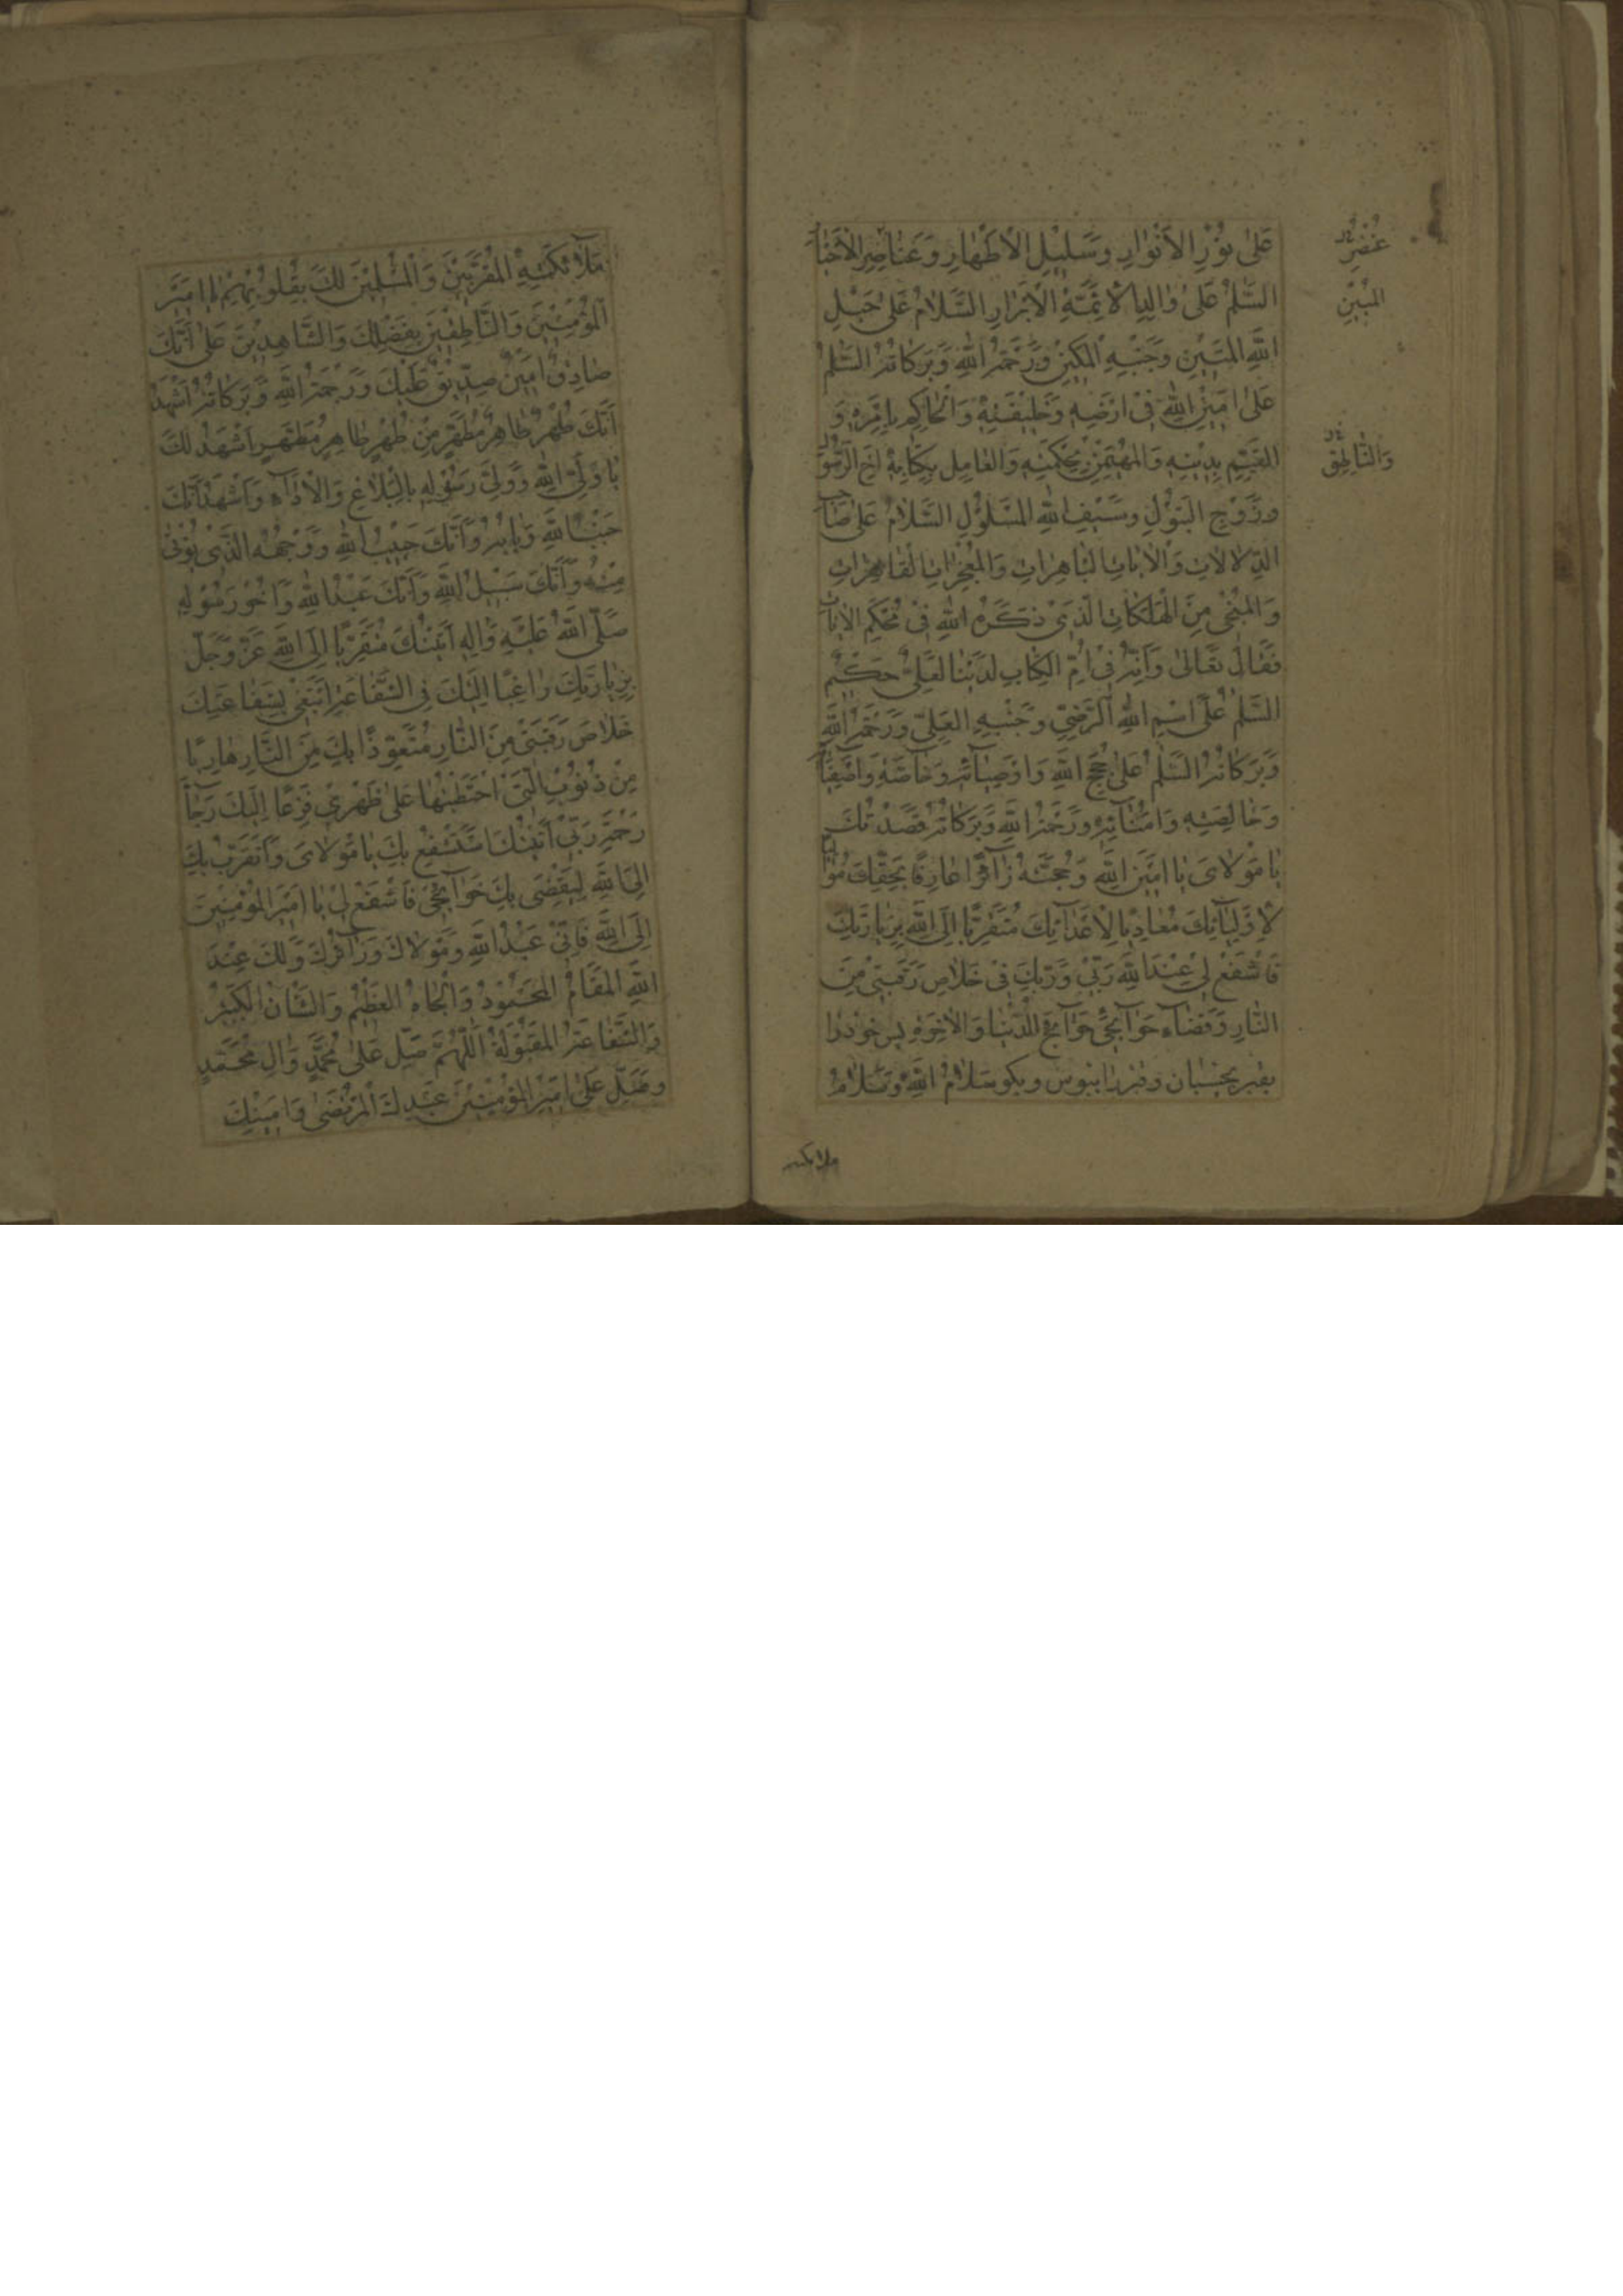 عَلىٰ نُوْرِ الاَنْوٰارِ وَسَلِيْلِ الْاَطْهٰارِ وَعَنٰاصِرِ الْاَخْيٰارِ
السَّلٰمُ عَلىٰ وٰالِدِ الْاَئِمَّةِ الْاَبْرٰارِ السَّلٰامُ عَلىٰ حَبْلِ
اللّٰهِ الْمَتِيْنِ وَجَنْبِهِ الْمَكِيْنِ وَرَحْمَةُ اللّٰهِ وَبَرَكٰاتُهُ السَّلٰمُ
عَلىٰ اَمِيْنِ اللّٰهِ فِىْ اَرْضِهِ وَخَلِيْفَتِهِ وَالْحٰاكِمِ بِاَمْرِهِ وَ
الْقَيِّمِ بِدِيْنِهِ وَالْمُهَيْمِنِ بِحِكْمَتِهِ وَالْعٰامِلِ بِكِتٰابِهِ اَخِ الرَّسُوْلِ
وَزَوْجِ الْبَتُوْلِ وَسَيْفِ اللّٰهِ الْمَسْلُوْلِ السَّلٰامُ عَلىٰ صٰاحِبِ
الدِّلٰالٰاتِ وَالْاٰيٰاتِ الْبٰاهِرٰاتِ وَالْمُعْجِزٰاتِ الْقٰاهِرٰاتِ
وَالْمُنْجِىْ مِنَ الْهَلَكٰاتِ الَّذِىْ ذَكَرَهُ اللّٰهُ فِىْ مُحْكَمِ الْاٰيٰاتِ
فَقٰالَ تَعٰالىٰ وَاِنَّهُ فِىْ اُمِّ الْكِتٰابِ لَدَيْنٰا لَعَلِىٌّ حَكِيْمٌ
السَّلٰمُ عَلىٰ اسْمِ اللّٰهِ الرَّضِىِّ وَجَنْبِهِ الْعَلِىِّ وَرَحْمَةُ اللّٰهِ
وَبَرَكٰاتُهُ السَّلٰمُ عَلىٰ حُجَجِ اللّٰهِ وَاَوْصِيٰائِهِ وَخٰاصَّةِ وَاَصْفِيٰائِهِ
وَخٰالِصَتِهِ وَاُمَنٰائِهِ وَرَحْمَةُ اللّٰهِ وَبَرَكٰاتُهُ قَصَدْتُكَ
يٰا مَوْلٰاىَ يٰا اَمِيْنَ اللّٰهِ وَحُجَّتَهُ زٰائِرًا عٰارِفًا بِحَقِّكَ مُوٰالِيًا
لِاَوْلِيٰائِكَ مُعٰادِيًا لِاَعْدٰائِكَ مُتَقَرِّبًا اِلَى اللّٰهِ بِزِيٰارَتِكَ
فَاشْفَعْ لِىْ عِنْدَ اللّٰهِ رَبِّىْ وَرَبِّكَ فِىْ خَلٰاصِ رَقَبَتِىْ مِنَ
النّٰارِ وَقَضٰاءِ حَوٰائِجِىْ حَوٰائِجِ الدُّنْيٰا وَالْاٰخِرَةِ پس خود را
بقبر بچسبان و قبر را ببوس و بگو سَلٰامُ اللّٰهِ وَسَلٰامُ
عُنْصُرِ
الْمُبِيْنِ
وَالنّٰاطِقِ
ملائكته
مَلٰائِكَتِهِ الْمُقَرَّبِيْنَ وَالْمُسَلِّمِيْنَ لَكَ بِقُلُوْبِهِمْ يٰا اَمِيْرَ
الْمُؤْمِنِيْنَ وَالنّٰاطِقِيْنَ بِفَضْلِكَ وَالشّٰاهِدِيْنَ عَلىٰ اَنَّكَ
صٰادِقٌ اَمِيْنٌ صِدِّيْقٌ عَلَيْكَ وَرَحْمَةُ اللّٰهِ وَبَرَكٰاتُهُ اَشْهَدُ
اَنَّكَ طُهْرٌ طٰاهِرٌ مُطَهَّرٌ مِنْ طُهْرٍ طٰاهِرٍ مُطَهَّرٍ اَشْهَدُ لَكَ
يٰا وَلِىَّ اللّٰهِ وَوَلِىَّ رَسُوْلِهِ بِالْبَلٰاغِ وَالْاَدٰاءِ وَاَشْهَدُ اَنَّكَ
جَنْبُ اللّٰهِ وَبٰابُهُ وَاَنَّكَ حَبِيْبُ اللّٰهِ وَوَجْهُهُ الَّذِىْ يُؤْتىٰ
مِنْهُ وَاَنَّكَ سَبِيْلُ اللّٰهِ وَاَنَّكَ عَبْدُ اللّٰهِ وَاَخُوْ رَسُوْلِهِ
صَلَّى اللّٰهُ عَلَيْهِ وَاٰلِهِ اَتَيْتُكَ مُتَقَرِّبًا اِلَى اللّٰهِ عَزَّ وَجَلَّ
بِزِيٰارَتِكَ رٰاغِبًا اِلَيْكَ فِى الشَّفٰاعَةِ اَبْتَغِىْ بِشَفٰاعَتِكَ
خَلٰاصَ رَقَبَتِىْ مِنَ النّٰارِ مُتَعَوِّذًا بِكَ مِنَ النّٰارِ هٰارِبًا
مِنْ ذُنُوْبِىَ الَّتِىْ احْتَطَبْتُهٰا عَلىٰ ظَهْرِىْ فَزِعًا اِلَيْكَ رَجٰاءَ
رَحْمَةِ رَبِّىْ اَتَيْتُكَ مُسْتَشْفِعُ بِكَ يٰا مَوْلٰاىَ وَاَتَقَرَّبُ بِكَ
اِلَى اللّٰهِ لِيَقْضِىَ بِكَ حَوٰائِجِىْ فَاشْفَعْ لِىْ يٰا اَمِيْرَ الْمُؤْمِنِيْنَ
اِلَى اللّٰهِ فَاِنِّىْ عَبْدُ اللّٰهِ وَمَوْلٰاكَ وَزٰائِرُكَ وَلَكَ عِنْدَ
اللّٰهِ الْمَقٰامُ الْمَحْمُوْدُ وَالْجٰاهُ الْعَظِيْمُ وَالشّٰانُ الْكَبِيْرُ
وَالشَّفٰاعَةُ الْمَقْبُوْلَةُ اَللّٰهُمَّ صَلِّ عَلىٰ مُحَمَّدٍ وَاٰلِ مُحَمَّدٍ
وَصَلِّ عَلىٰ اَمِيْرِ الْمُؤْمِنِيْنَ عَبْدِكَ الْمُرْتَضىٰ وَاَمِيْنِكَ